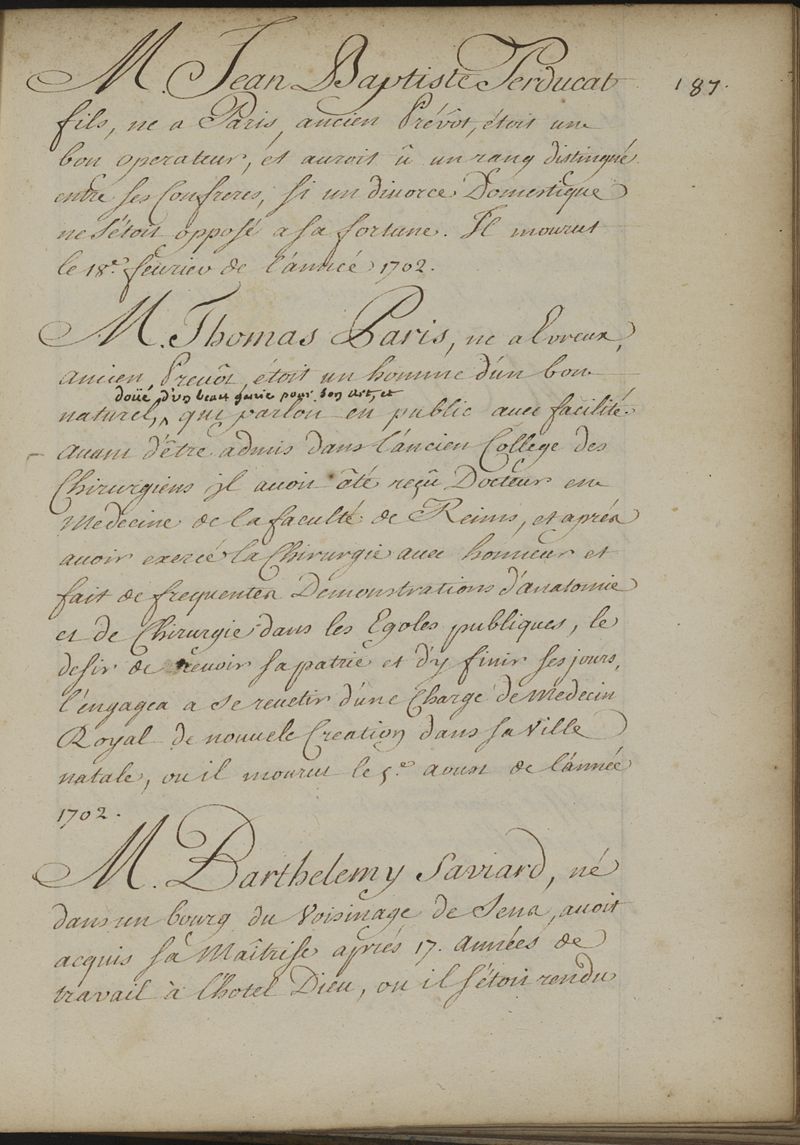 M. Jean Baptiste Perducat
187.
fils, ne a Paris, ancien Prévôt, étoit un
bon operateur, et auroit û un rang distingué
entre ses Confreres, si un divorce Domestique
ne s'étoit opposé a sa fortune. Il mourut
le 18e. fevrier de l'année 1702.
M. Thomas Paris, ne a Evreux,
ancien Prevôt, étoit un homme d'un bon
doüé d'un beau génie pour son art, et
naturel, qui parloit en public avec facilité.
avant d'être admis dans l'ancien College des
Chirurgiens il avoit été reçû Docteur en
Medecine de la faculté de Reims, et aprés
avoir exercé la Chirurgie avec honneur et
fait de frequentes Demonstrations d'anatomie
et de Chirurgie dans les Ecoles publiques, le
desir de revoir sa patrie et d'y finir ses jours,
l'engagea a se revetir d'une Charge de Medecin
Royal de nouvele Creation dans sa Ville
natale, ou il mourut le 5e. aoust de l'année
1702.
M. Barthelemy Saviard, né
dans un bourg du Voisinage de Sens, avoit
acquis sa Maîtrise aprés 17. années de
travail à l'hotel Dieu, ou il s'étoit rendu